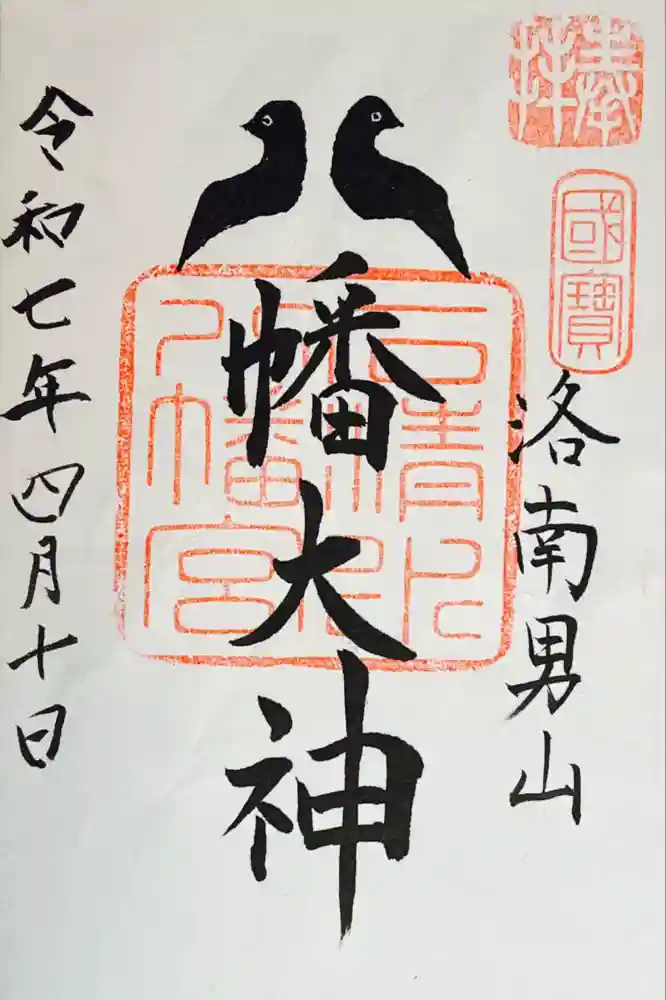 奉拝
國寶
洛南男山
八幡大神
石清水
八幡宮
令和七年四月十日